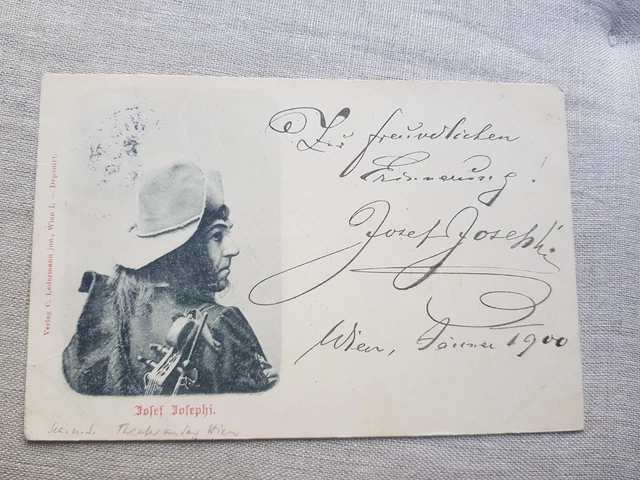 Zur freundlichen
Erinnerung!
Josef Josephi
Wien, Jänner 1900
Verlag C. Ledermann jun., Wien I. — Deponirt.
Josef Josephi.
Theater an der Wien